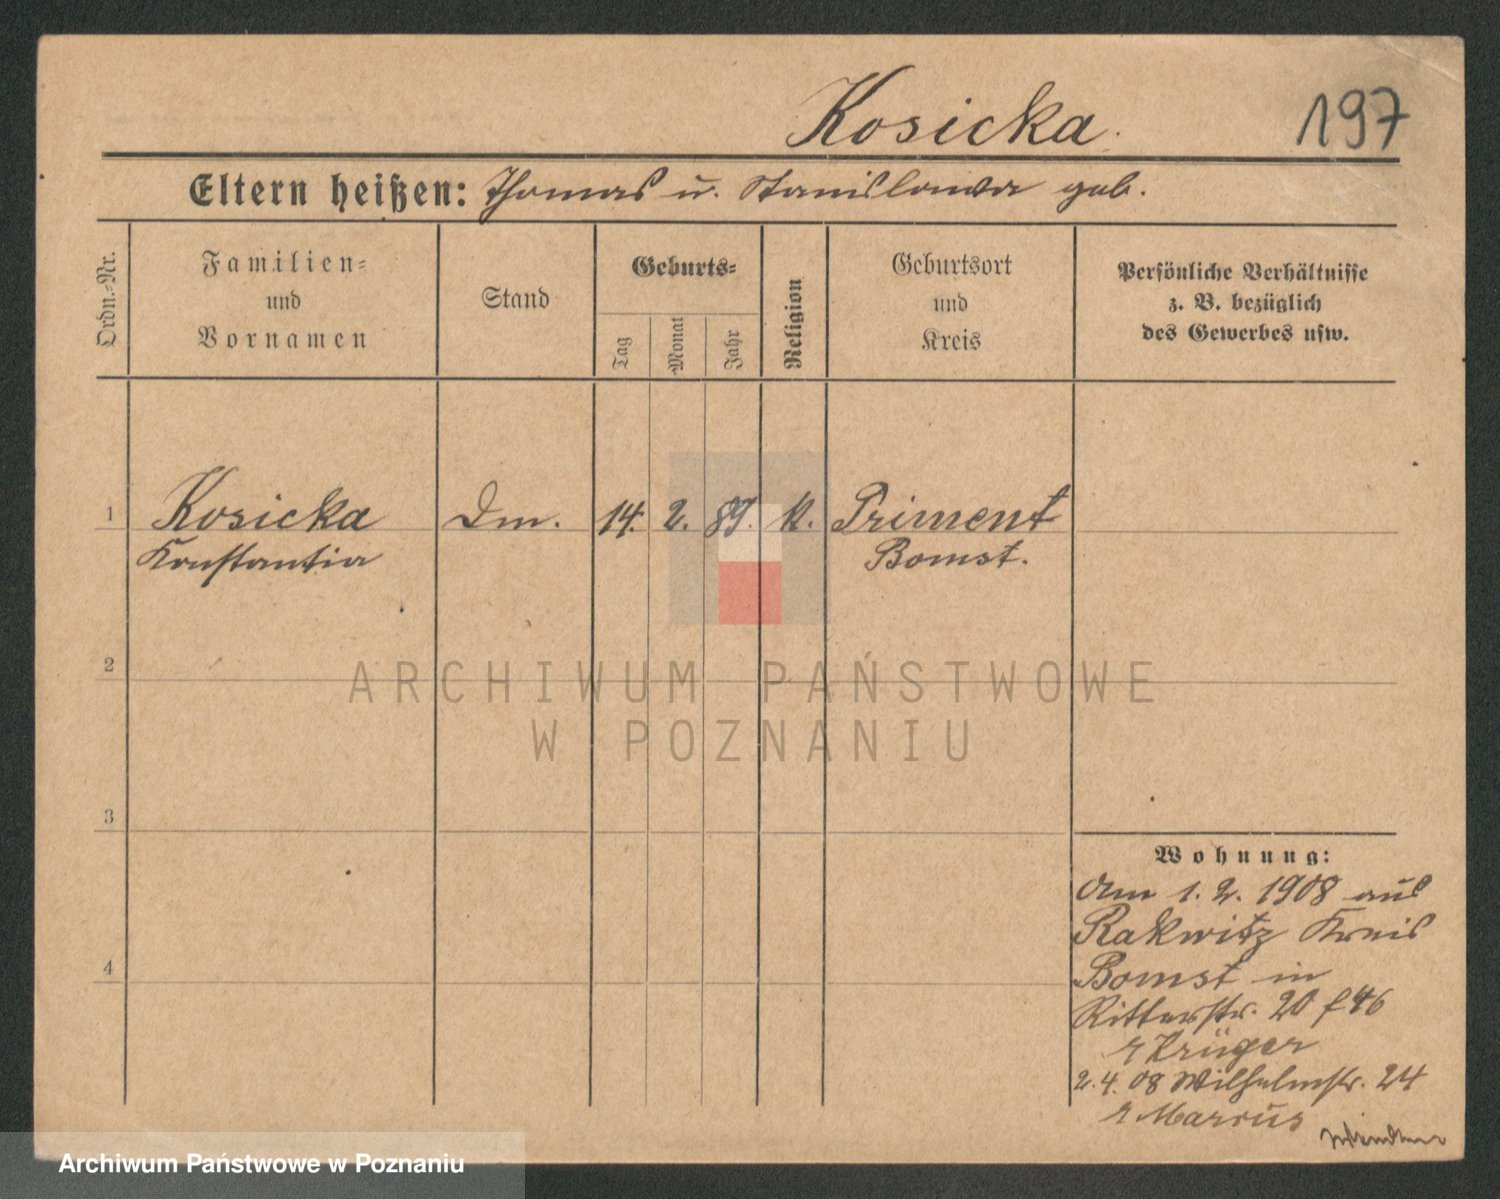 Kosicka.
197
Eltern heißen: Thomas u. Stanislawa geb.
Ordn.=Nr.
Familien=
und
Vornamen
Stand
Geburts=
Tag
Monat
Jahr
Religion
Geburtsort
und
Kreis
Persönliche Verhältnisse
z. B. bezüglich
des Gewerbes usw.
1 Kosicka Dm. 14. 2. 89. k. Priment
Konstantia Bomst.
2
3
4
Wohnung:
Am 1. 2. 1908 aus
Rakwitz Kreis
Bomst in
Ritterstr. 20 f 46
Krüger
2. 4. 08 Wilhelmstr. 24
Marcus
ARCHIWUM PAŃSTWOWE
W POZNANIU
Archiwum Państwowe w Poznaniu